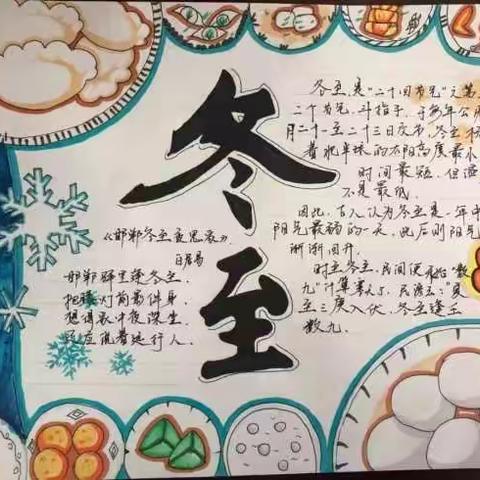 冬至
《邯郸冬至夜思家》
白居易
邯郸驿里逢冬至，
抱膝灯前影伴身。
想得家中夜深坐，
还应说着远行人。
冬至是"二十四节气"之第
二个节气，斗指子，于每年公历
月二十一至二十三日交节，冬至
着北半球的太阳高度最小
时间最短，但温
不是最低。
因此，古人认为冬至是一年中
阳气最弱的一天，此后则阳气
渐渐回升。
时至冬至，民间便开始"数
九"计算寒天了，民谚云："夏
至三庚入伏，冬至逢壬
数九。